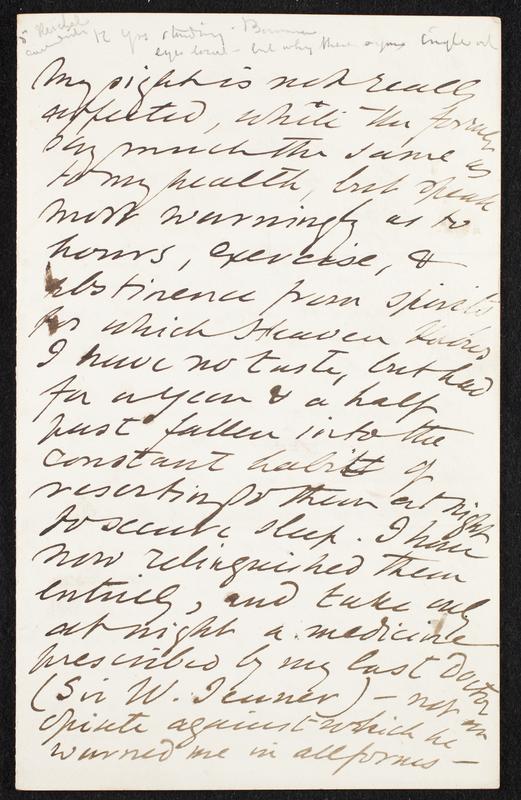 12 yrs standing - Bowman
eyes - but why these single
My sight is not really
affected, while the former
say much the same as
to my health, but speak
most warningly as to
hours, exercise, &
abstinence from spirits
for which Heaven knows
I have no taste, but had
for a year & a half
past fallen into the
constant habit of
resorting to them at night
to secure sleep. I have
now relinquished them
entirely, and take only
at night a medicine
prescribed by my last Doctor
(Sir W. Jenner) – not an
opiate against which he
warned me in all forms –